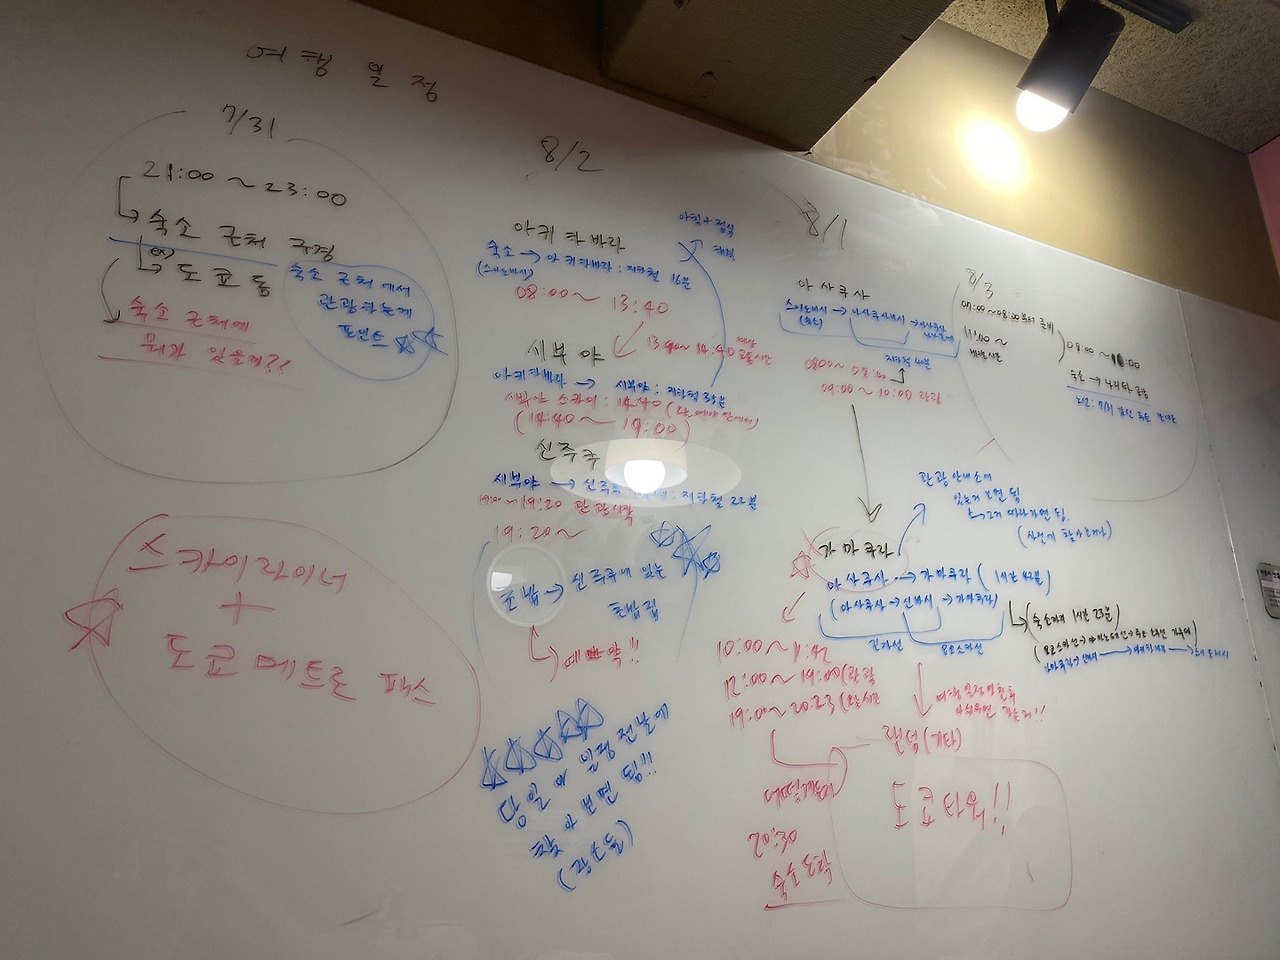 여행 일정
7/31
21:00 ~ 23:00
숙소 근처 구경
ex)
도쿄돔
숙소 근처에
뭐가 있을까?!
숙소 근처에서
관광하는게
포인트
스카이라이너
+
도쿄메트로 패스
8/2
아키하바라
숙소 → 아키하바라 : 지하철 16분
(스이도바시)
08:00 ~ 13:40
점심
해결
13:40 ~ 14:40 예상
교통시간
시부야
아키하바라 → 시부야 : 지하철 35분
시부야 스카이 : 14:40
(14:40 ~ 19:00)
신주쿠
시부야 → 신주쿠 : 지하철 22분
19:00 ~ 19:20 관광시작
19:20 ~
초밥 → 신주쿠에 있는
초밥집
예약!!
당일 아 일정 전날에
찾아보면 됨!!!
(장소들)
8/1
아사쿠사
스이도바시 →
(숙소)
지하철 40분
09:00 ~ 10:00 관광
관광 안내소에
있는거 보면 됨
그거 따라가면 됨.
가마쿠라
아사쿠사 → 가마쿠라 (1시간 42분)
(아사쿠사 → 신바시 → 가마쿠라)
긴자선
요코스카선
(숙소까지 1시간 23분)
10:00 ~ 11:42
12:00 ~ 19:00 (관광
19:00 ~ 20:23 (
어떻게든
20:30
숙소 도착
랜덤 (기타)
도쿄타워!!
8/3
07:00 ~ 08:00 부터 준비
11:00 ~
비행시간
숙소 → 나리타 공항